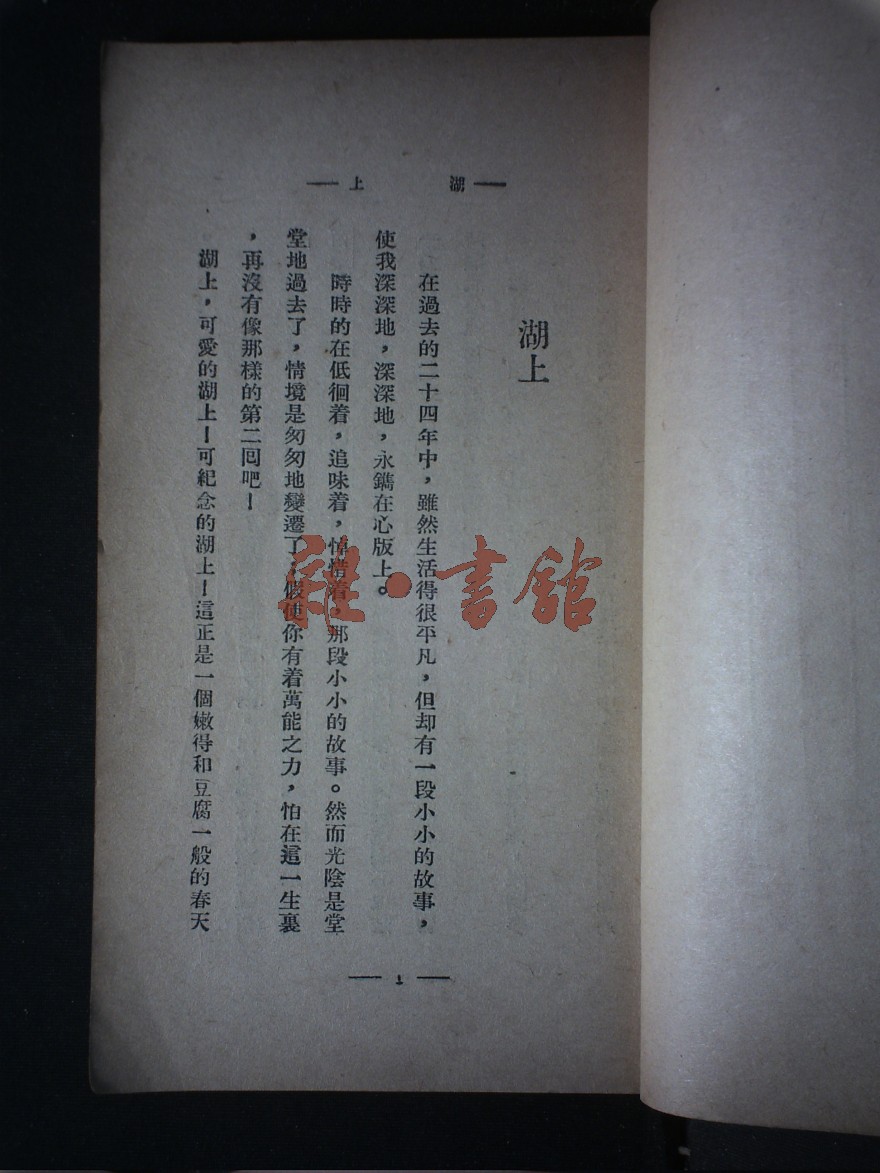 湖上
湖上
在過去的二十四年中，雖然生活得很平凡，但却有一段小小的故事，
使我深深地，深深地，永鐫在心版上。
時時的在低徊着，追味着，悼惜着，那段小小的故事。然而光陰是堂
堂地過去了，情境是匆匆地變遷了，假使你有着萬能之力，怕在這一生裏
，再沒有像那樣的第二囘吧！
湖上，可愛的湖上！可紀念的湖上！這正是一個嫩得和豆腐一般的春天
1
雜·書館